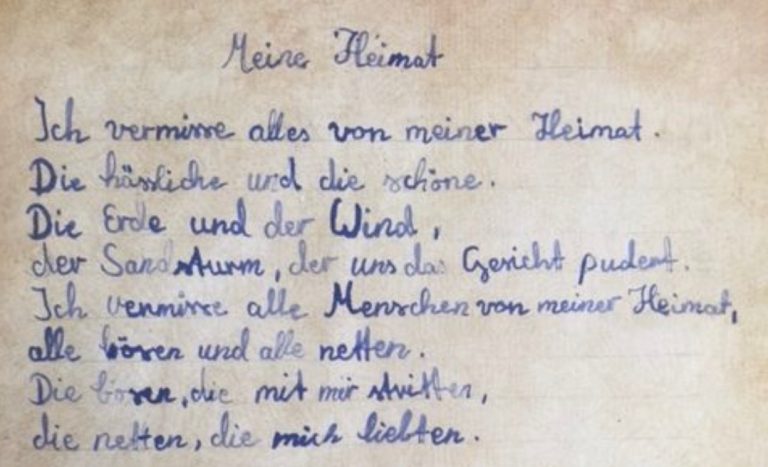 Meine Heimat
Ich vermisse alles von meiner Heimat.
Die hässliche und die schöne.
Die Erde und der Wind,
der Sandsturm, der uns das Gesicht pudert.
Ich vermisse alle Menschen von meiner Heimat,
alle bösen und alle netten.
Die bösen, die mit mir stritten,
die netten, die mich liebten.